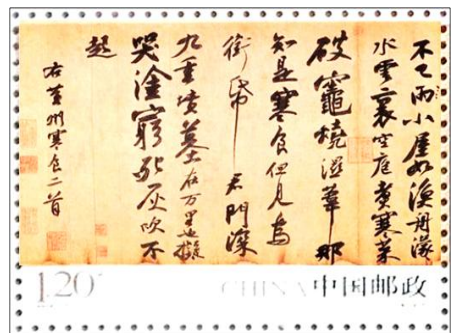 不已雨小屋如漁舟濛
水雲裏空庖煮寒菜
破竈燒溼葦那
知是寒食但見烏
銜帋君門深
九重墳墓在万里也擬
哭塗窮死灰吹不
起
右黃州寒食二首
1.20
CHINA 中国邮政